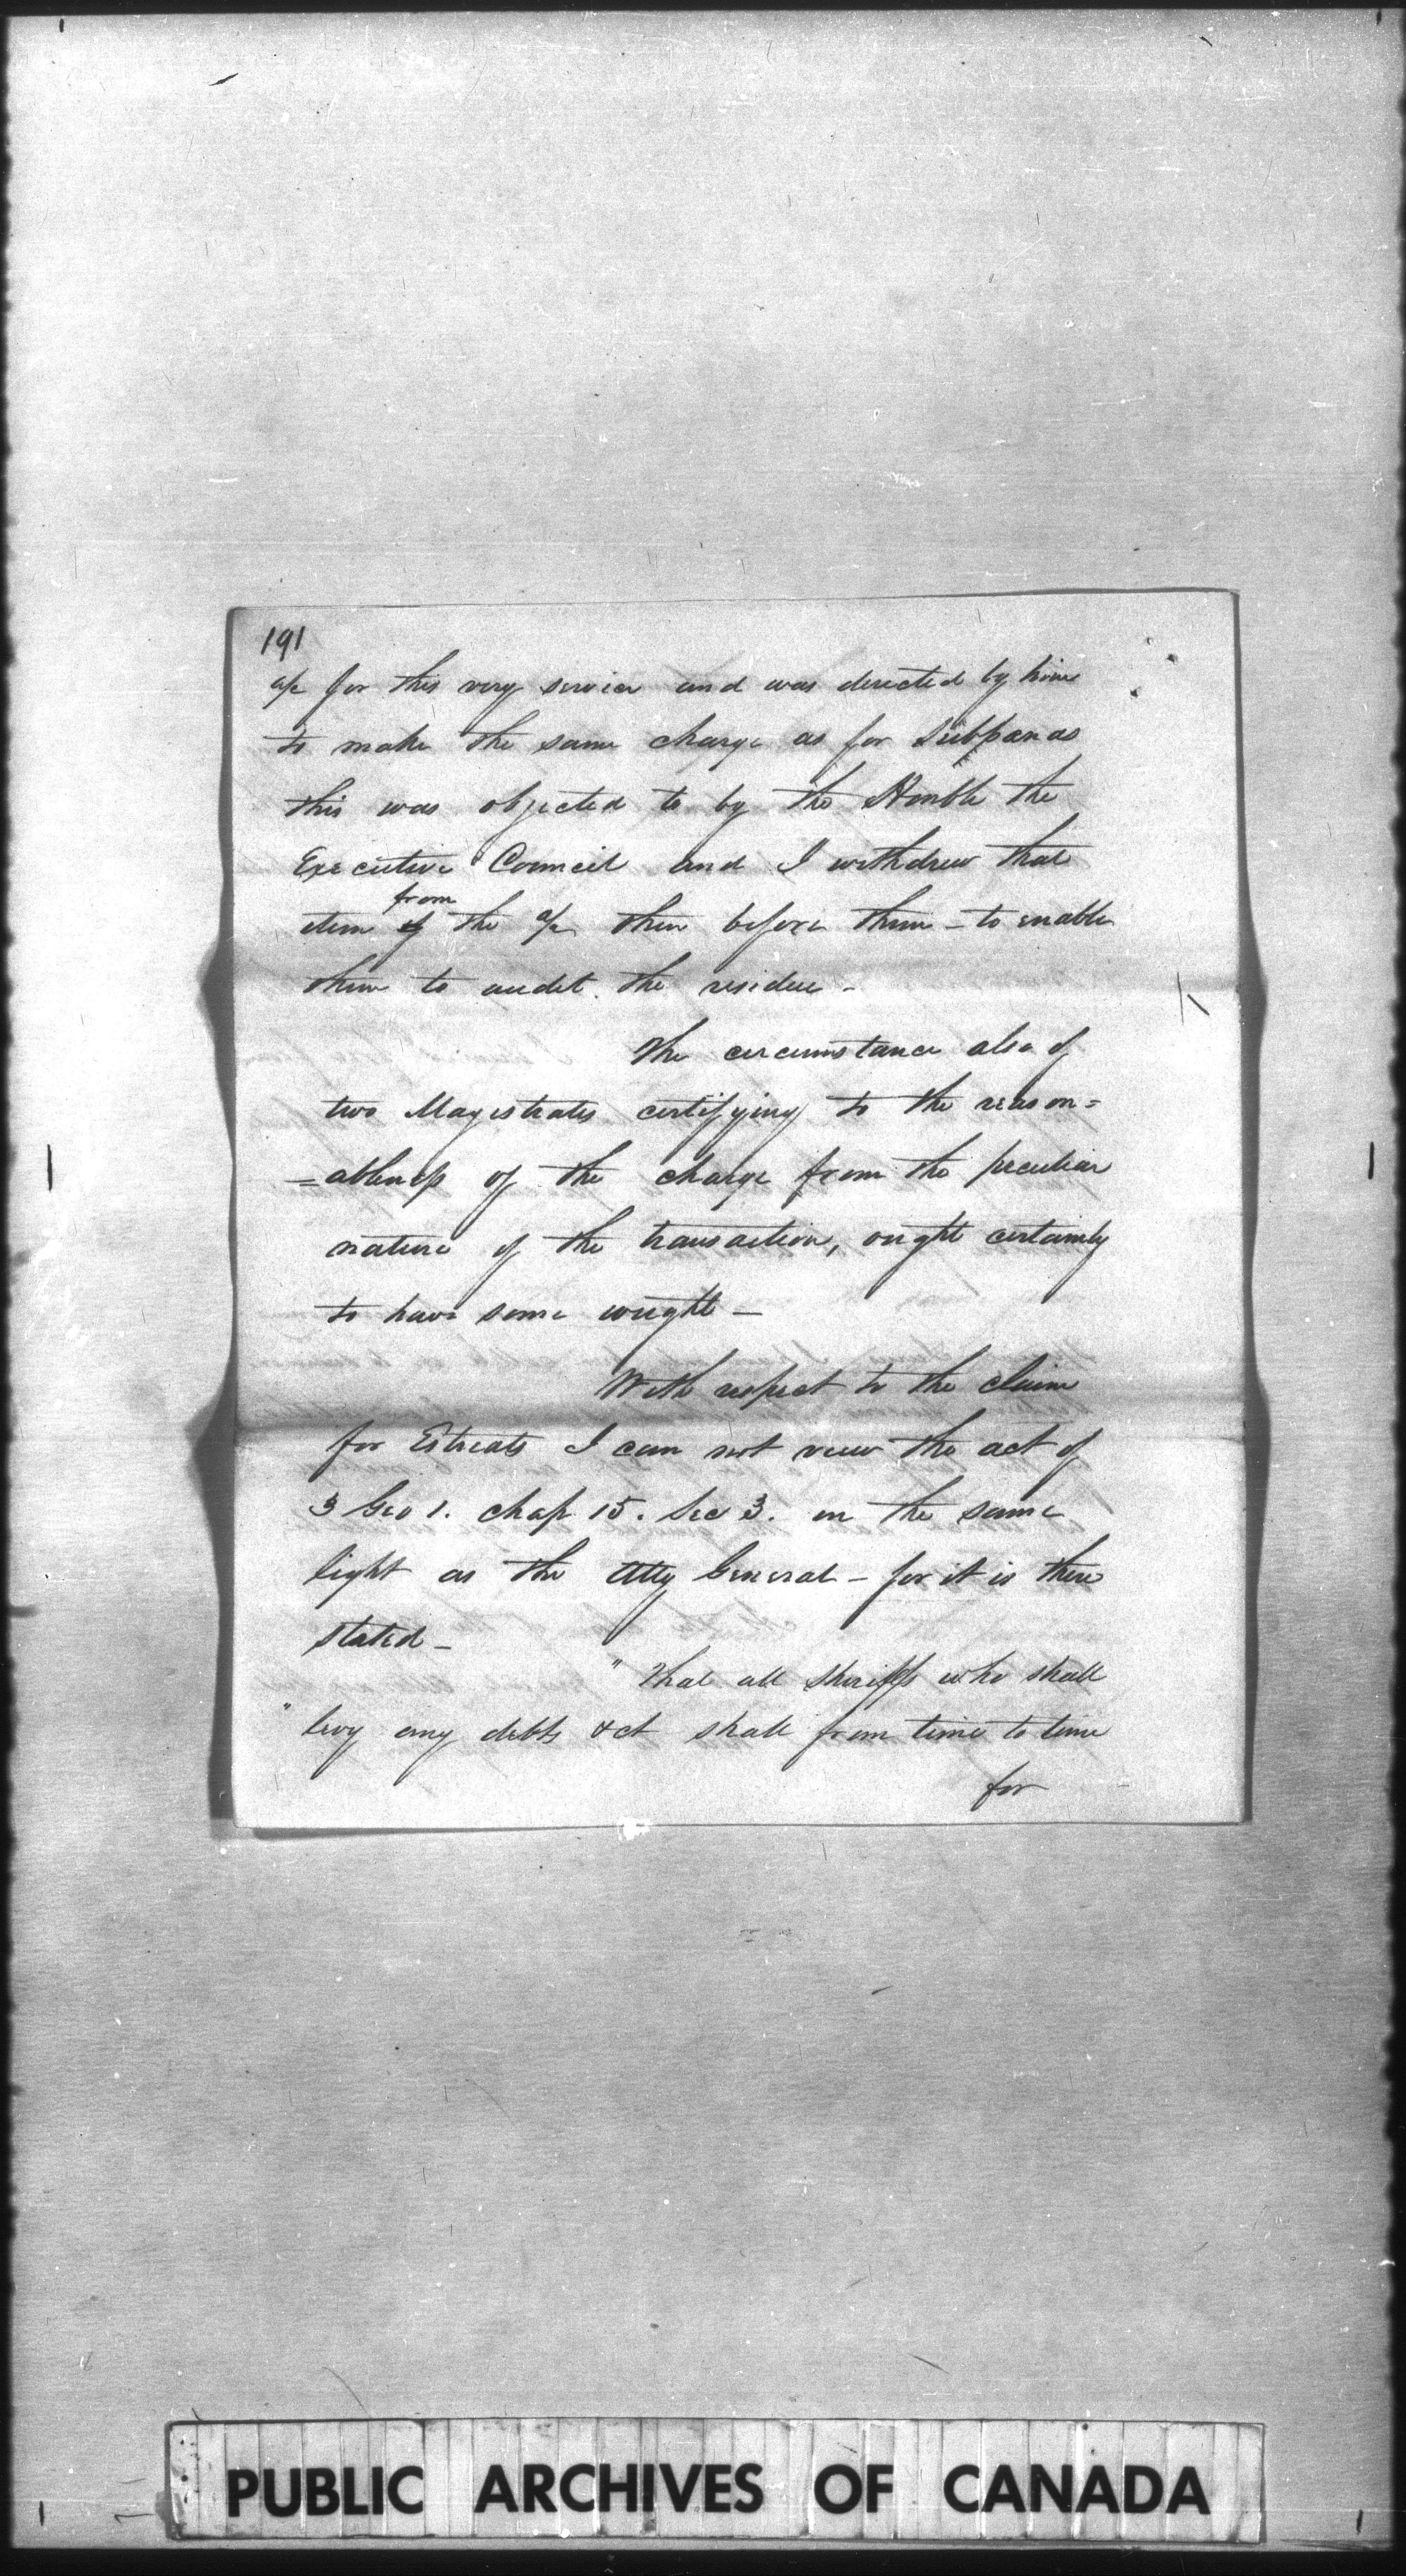 191
a/c for this very service and was directed by him
to make the same charge as for Subpœnas
this was objected to by the Honble the
Executive Council and I withdrew that
from
item of the a/c then before them - to enable
them to audit the residue -
The circumstance also of
two Magistrates certifying to the reason=
=ableness of the charge from the peculiar
nature of the transaction, ought certainly
to have some weight -
With respect to the claim
for Estreats I can not view the act of
3 Geo 1. chap 15. Sec 3. in the same
light as the Atty General - for it is there
stated -
" That all Sheriffs who shall
" levy any debts &ct shall from time to time
for
PUBLIC ARCHIVES OF CANADA